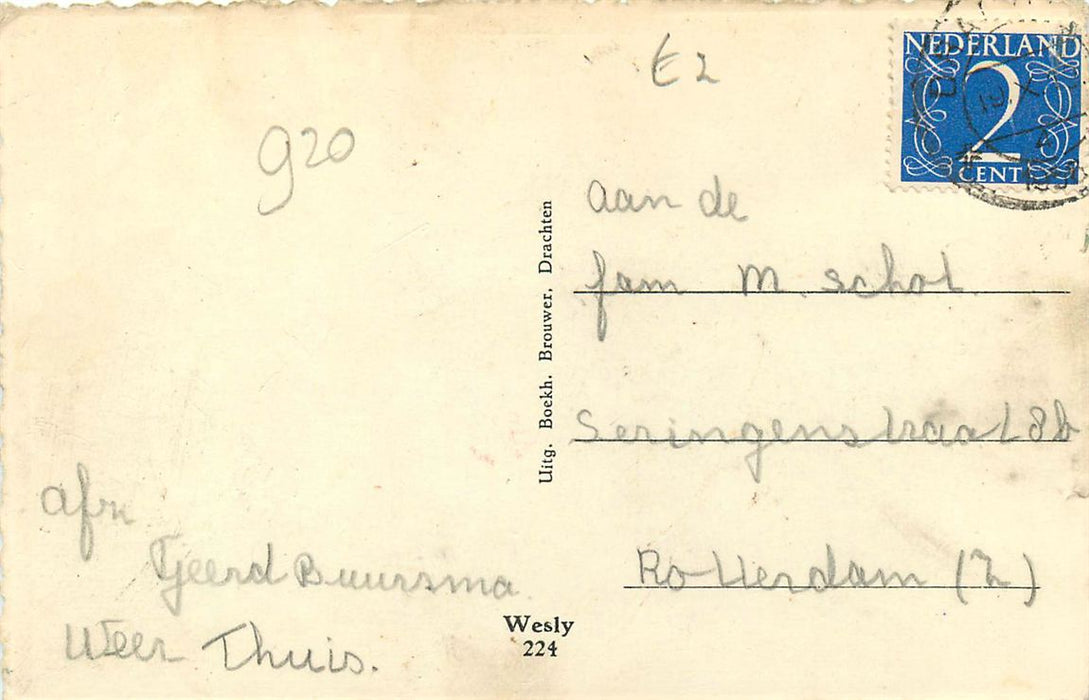 E2
920
NEDERLAND
2
CENT
aan de
fam M. Schot
Seringenstraat 8b
Rotterdam (Z)
Uitg. Boekh. Brouwer, Drachten
afz
Tjeerd Buursma
Weer Thuis.
Wesly
224